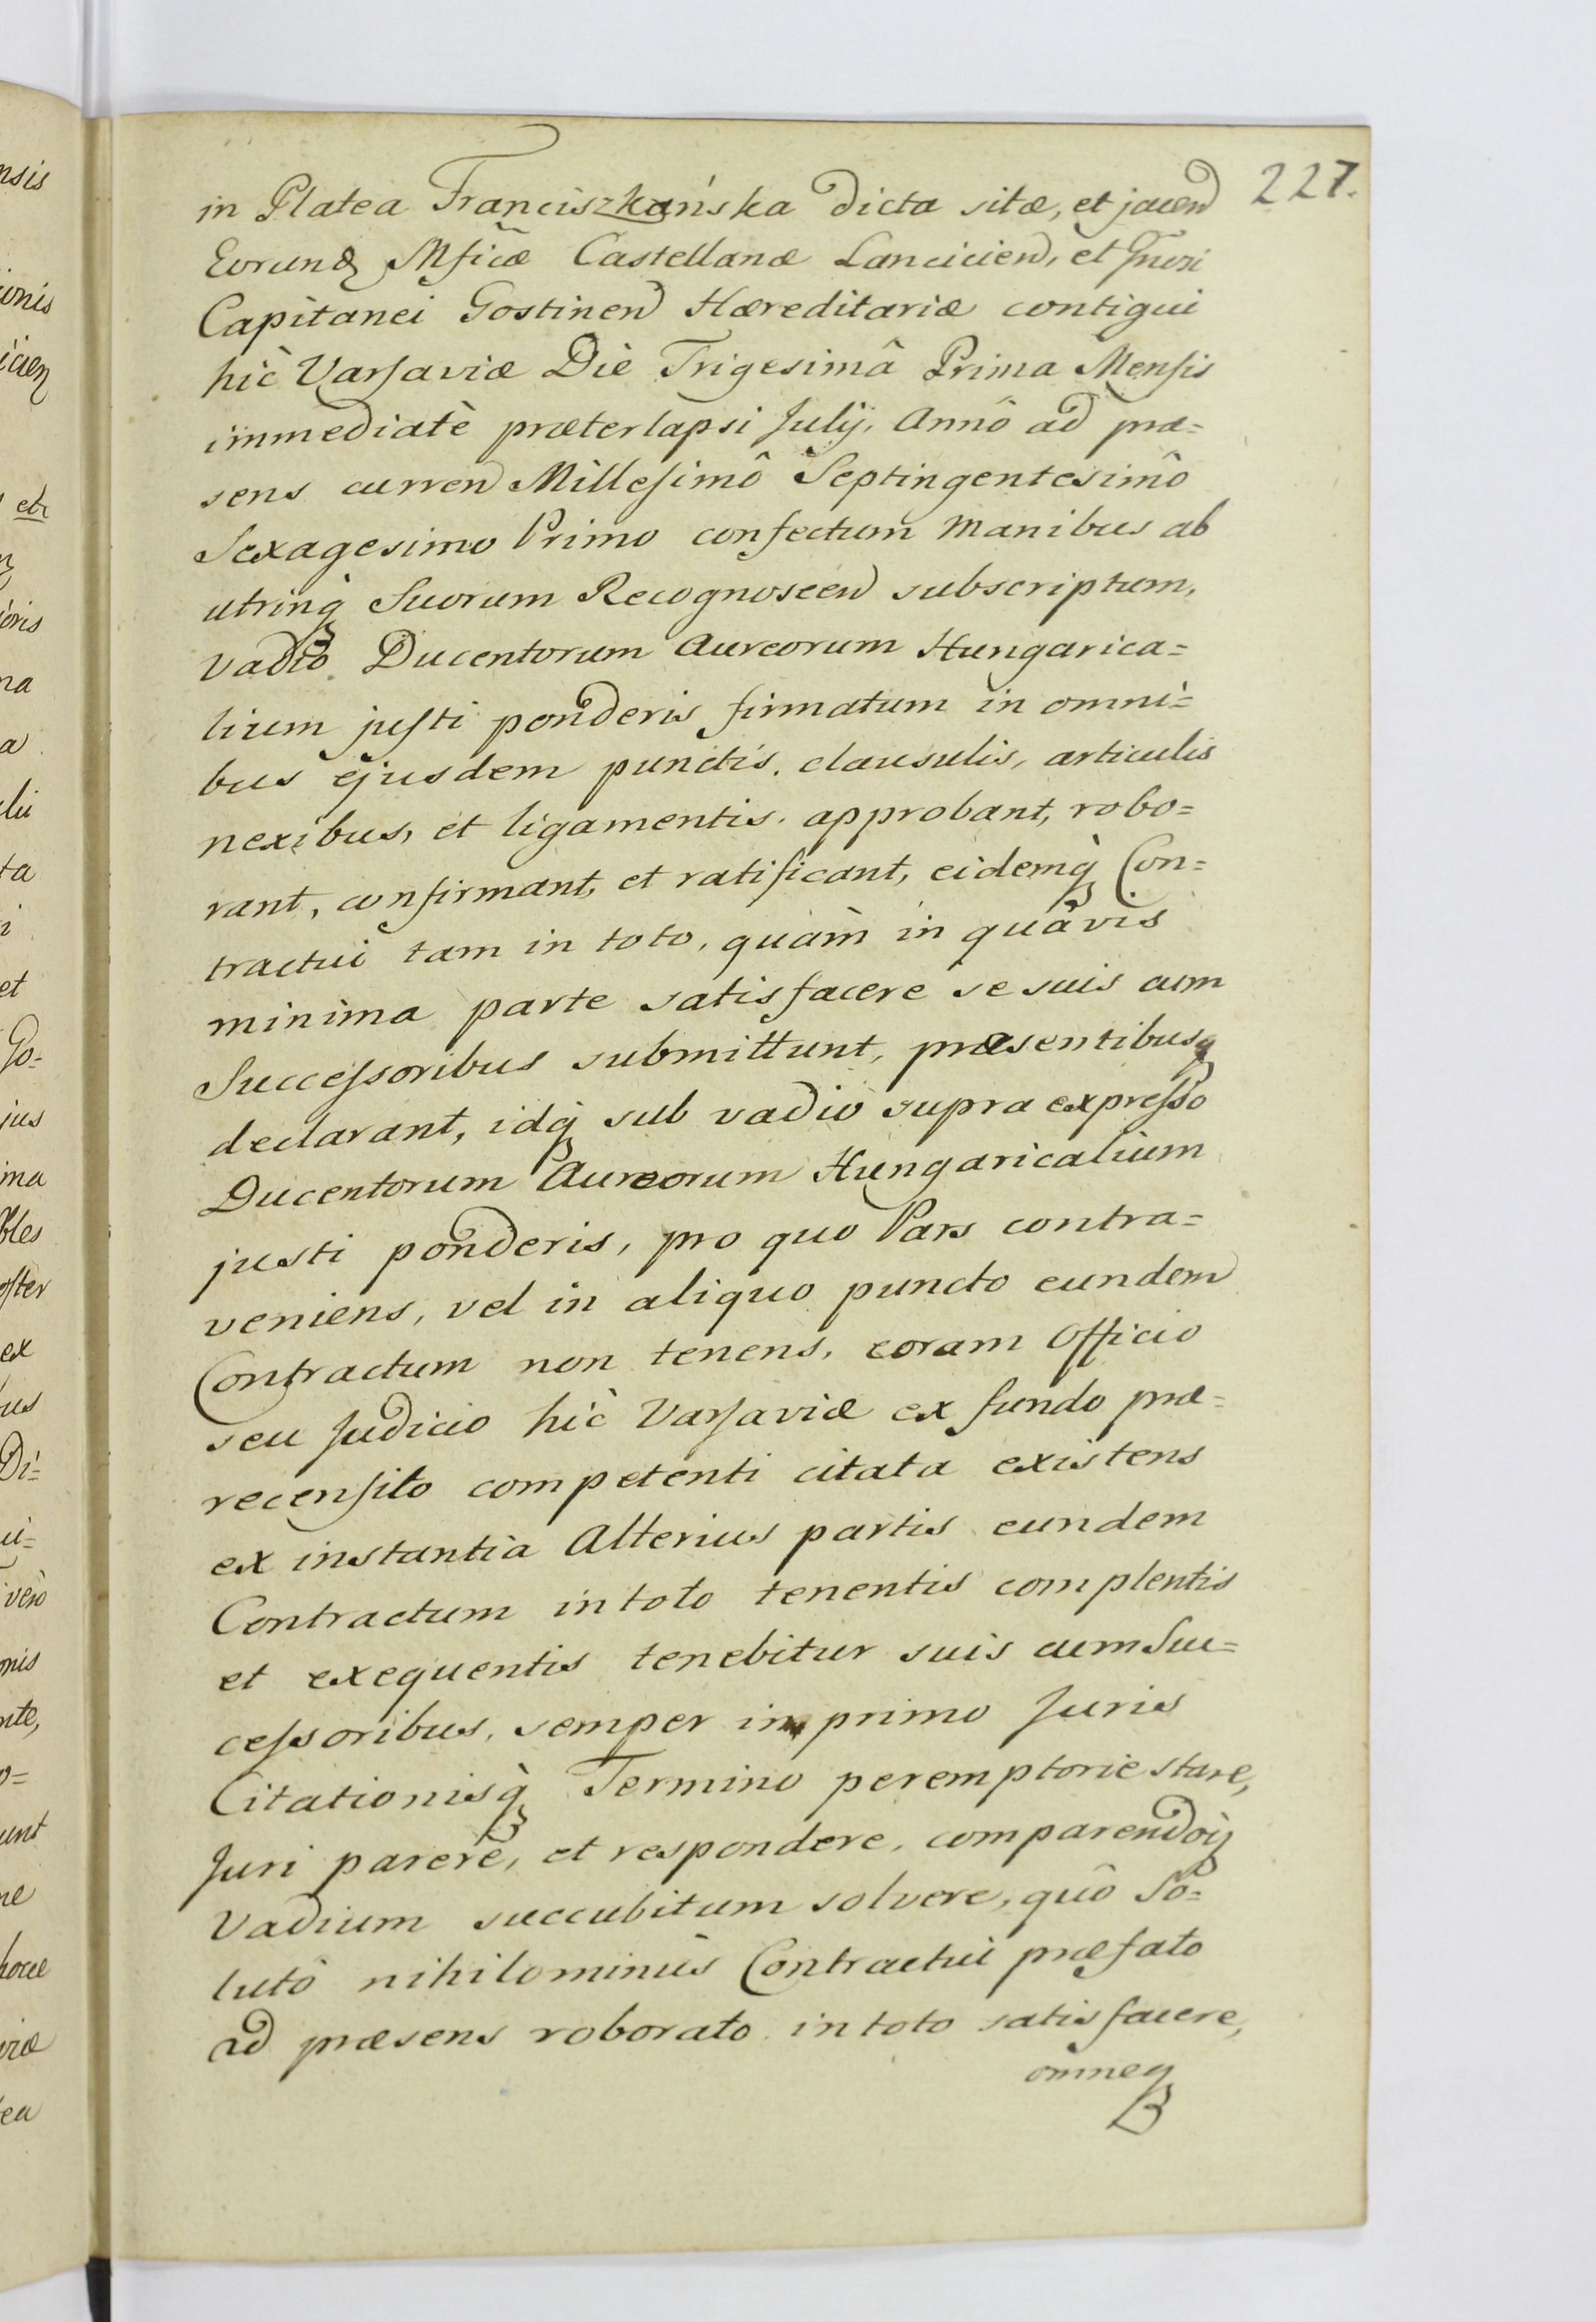 227.
in Platea Franciszkańska dicta sitæ, et jacen
Eorund Mficæ Castellanæ Lancicien, et Gnosi
Capitanei Gostinen Hæreditariæ contigui
hic Varsaviæ Die Trigesimâ Prima Mensis
immediatè præterlapsi Julij, Annô ad præ=
sens curren Millesimô Septingentesimô
Sexagesimo Primo confectum manibus ab
utrinq Suorum Recognoscen subscriptum,
vadio Ducentorum Aureorum Hungarica=
lium justi ponderis firmatum in omni=
bus ejusdem punctis, clausulis, articulis
nexibus, et ligamentis approbant, robo=
rant, confirmant, et ratificant, eidemq Con=
tractui tam in toto, quàm in quâvis
minima parte satisfacere se suis cum
Successoribus submittunt, præsentibusq
declarant, idq sub vadio supra expresso
Ducentorum Aureorum Hungaricalium
justi ponderis, pro quo Pars contra=
veniens, vel in aliquo puncto eundem
Contractum non tenens, coram Officio
seu Judicio hic Varsaviæ ex fundo præ=
recensito competenti citata existens
ex instantia Alterius partis eundem
Contractum in toto tenentis complentis
et exequentis tenebitur suis cum Suc=
cessoribus, semper in primo Juris
Citationisq Termino peremptorie stare,
Juri parere, et respondere, comparendoq
vadium succubitum solvere, quô So=
lutô nihilominùs Contractui præfato
ad præsens roborato in toto satisfacere,
omneq
nsis
ionis
icien
et
oris
na
a
lii
ta
i
et
Go=
jus
ima
bles
oster
ex
bus
Di=
ui=
verò
onis
nte,
o=
unt
ne
horæ
viæ
tea